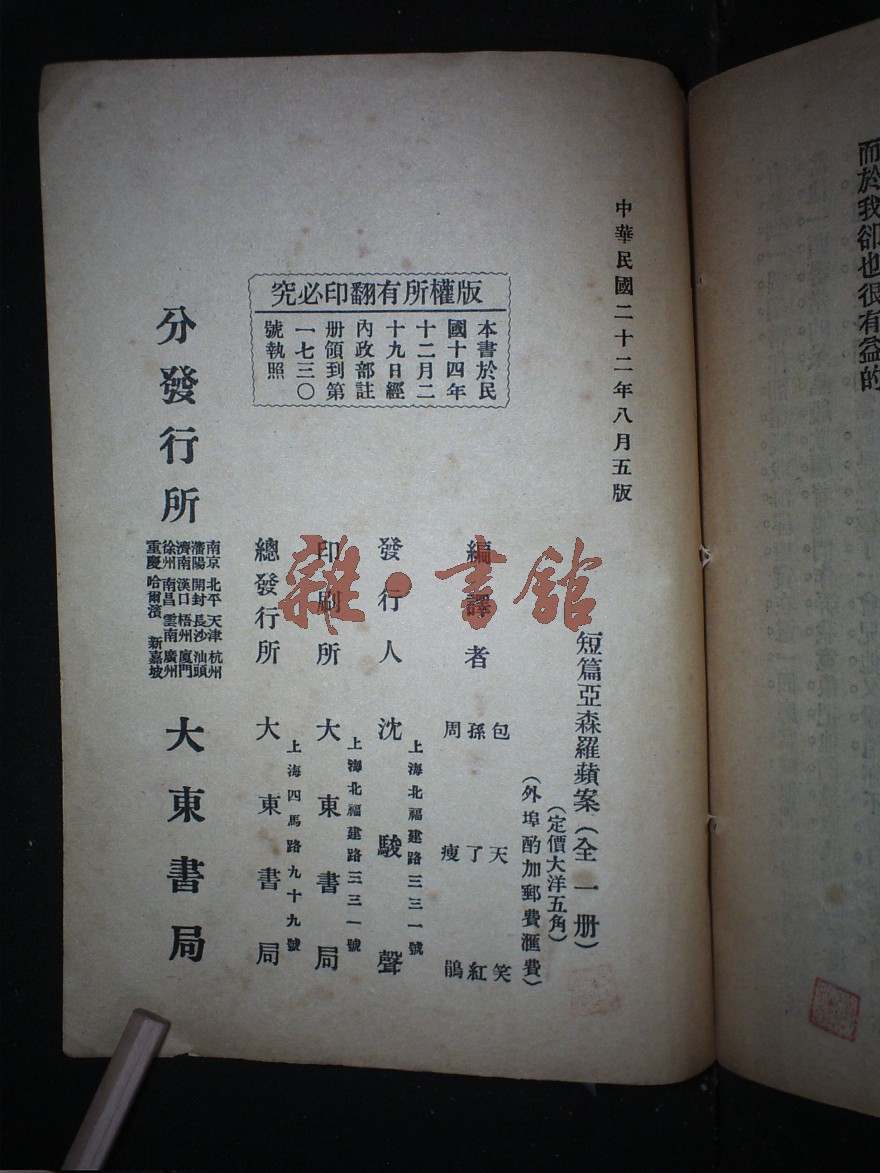 而於我卻也很有益的
中華民國二十二年八月五版
版權所有翻印必究
本書於民
國十四年
十二月二
十九日經
內政部註
册領到第
一七三〇
號執照
短篇亞森羅蘋案(全一册)
(定價大洋五角)
(外埠酌加郵費匯費)
編譯者
包天笑
孫了紅
周瘦鵑
上海北福建路三三一號
發行人 沈駿聲
上海北福建路三三一號
印刷所 大東書局
上海四馬路九十九號
總發行所 大東書局
分發行所
南京 北平 天津 杭州
瀋陽 開封 長沙 汕頭
濟南 漢口 梧州 廈門
徐州 南昌 雲南 廣州
重慶 哈爾濱 新嘉坡
大東書局
雜·書館